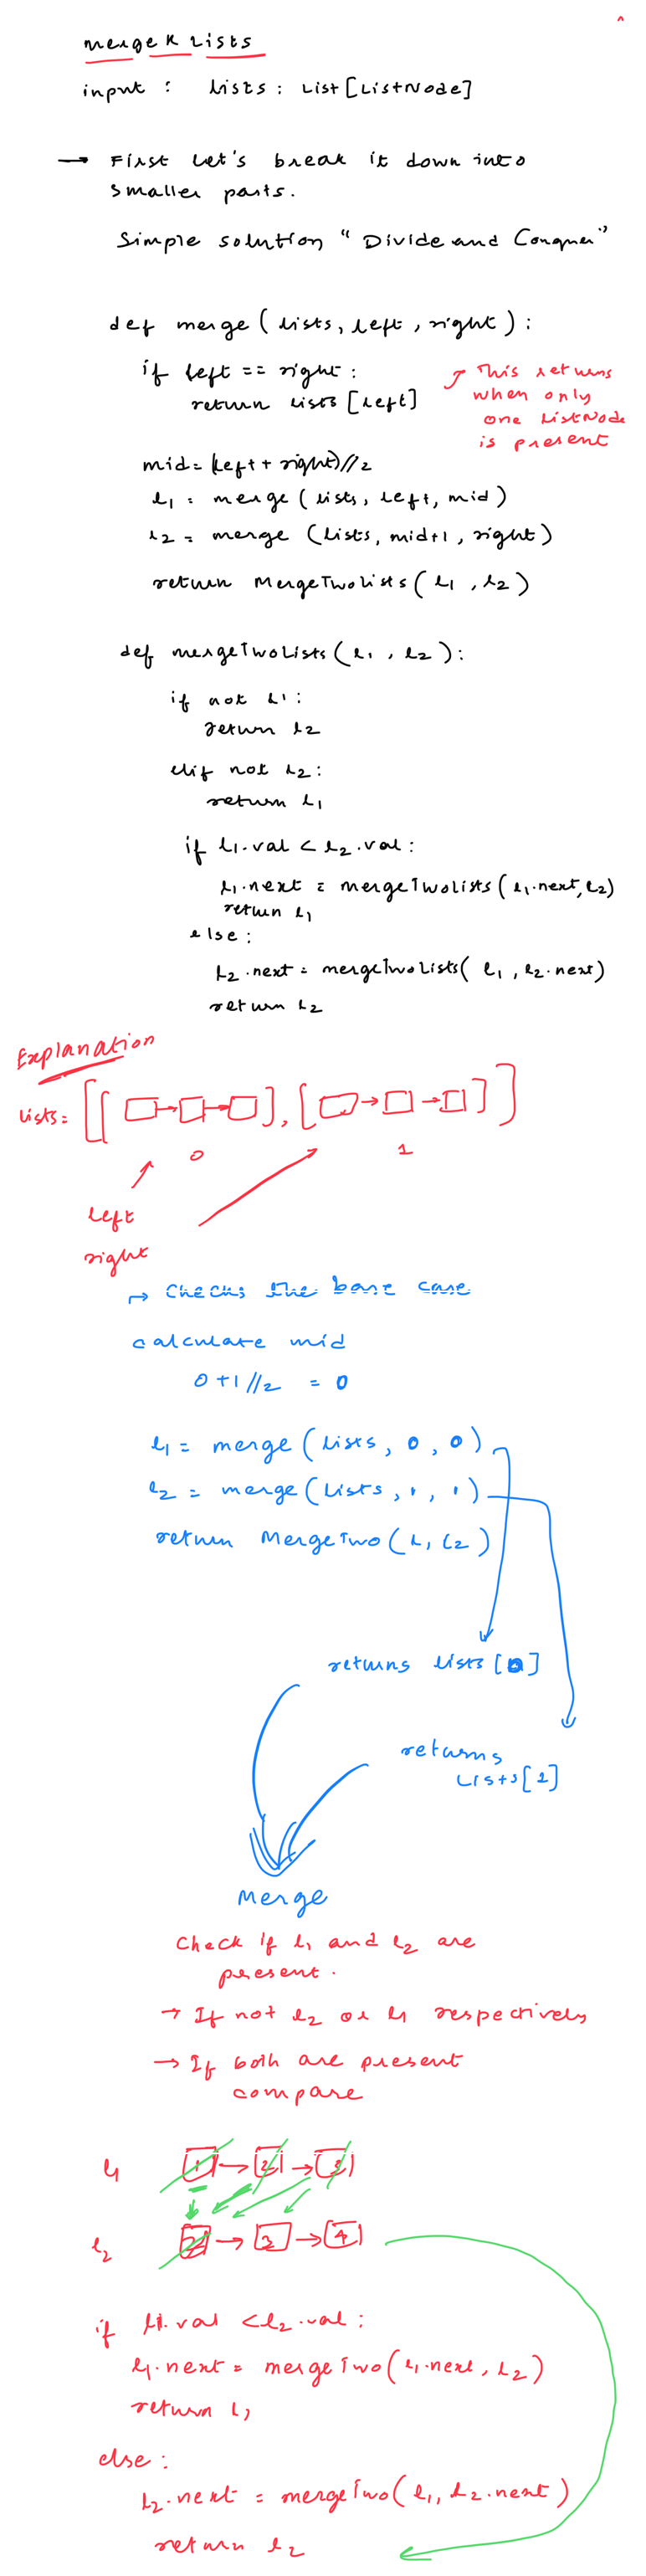 merge K Lists
input : lists : List [ListNode]
→ First let's break it down into
smaller parts.
Simple solution " Divide and Conquer"
def merge ( lists, left , right ) :
if left == right :
return lists [left]
This returns
when only
one ListNode
is present
mid = (left + right) // 2
l1 = merge ( lists, left, mid )
l2 = merge ( lists, mid+1 , right )
return MergeTwoLists ( l1 , l2 )
def mergeTwoLists ( l1 , l2 ) :
if not l1 :
return l2
elif not l2 :
return l1
if l1.val < l2.val :
l1.next = mergeTwoLists ( l1.next, l2 )
return l1
else :
l2.next = mergeTwoLists ( l1 , l2.next )
return l2
Explanation
lists = [ [ □→□→□ ] , [ □→□→□ ] ]
0 1
left
right
→ Checks the base case
calculate mid
0 + 1 // 2 = 0
l1 = merge ( lists , 0 , 0 )
l2 = merge ( lists , 1 , 1 )
return MergeTwo ( l1, l2 )
returns lists [0]
returns
Lists [1]
Merge
Check if l1 and l2 are
present .
→ If not l2 or l1 respectively
→ If both are present
compare
l1 1 → 2 → 3
l2 2 → 3 → 4
if l1.val < l2.val :
l1.next = mergeTwo ( l1.next , l2 )
return l1
else :
l2.next = mergeTwo ( l1, l2.next )
return l2